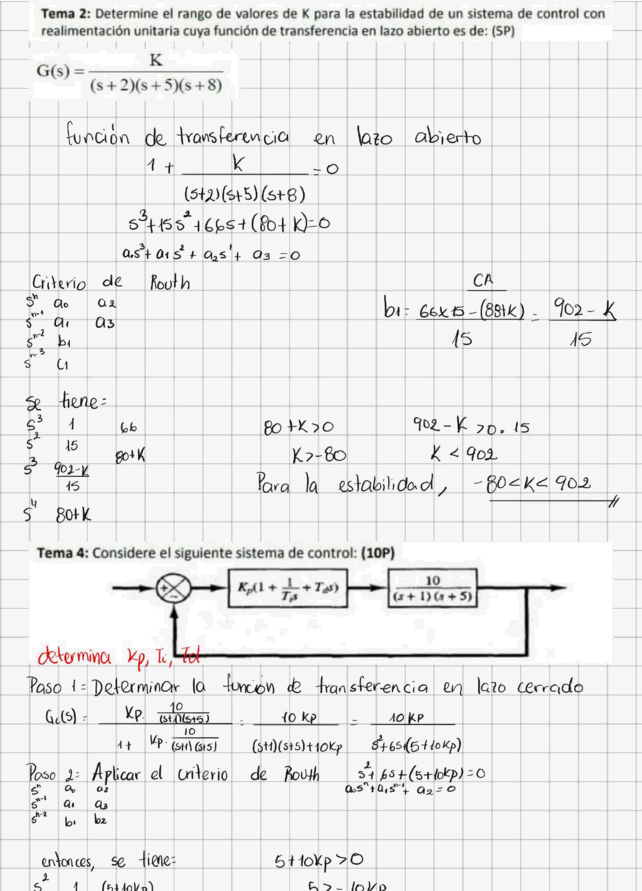 Tema 2: Determine el rango de valores de K para la estabilidad de un sistema de control con
realimentación unitaria cuya función de transferencia en lazo abierto es de: (5P)
G(s) = K / (s+2)(s+5)(s+8)
función de transferencia en lazo abierto
1 + K / (s+2)(s+5)(s+8) = 0
s³+15s²+66s+(80+K)=0
a₀s³+ a₁s² + a₂s¹ + a₃ = 0
Criterio de Routh
sⁿ a₀ a₂
sⁿ⁻¹ a₁ a₃
sⁿ⁻² b₁
sⁿ⁻³ c₁
CA
b₁ = 66x15-(88+K) / 15 = 902-K / 15
se tiene:
s³ 1 66
s² 15 80+K
s³ 902-K / 15
s⁴ 80+K
80+K>0 902-K >0.15
K>-80 K < 902
Para la estabilidad, -80<K< 902
Tema 4: Considere el siguiente sistema de control: (10P)
+ -
Kp(1 + 1/Tᵢs + T_d s)
10 / (s+1)(s+5)
determina Kp, Ti, Td
Paso 1: Determinar la función de transferencia en lazo cerrado
G₆(s) = Kp. 10/(s+1)(s+5) / 1 + Kp. 10/(s+1)(s+5) = 10 Kp / (s+1)(s+5)+10Kp = 10 Kp / s²+6s+(5+10Kp)
Paso 2: Aplicar el criterio de Routh s²+ 6s+(5+10Kp)=0
sⁿ a₀ a₂ a₀sⁿ+a₁sⁿ⁻¹+ a₂=0
sⁿ⁻¹ a₁ a₃
sⁿ⁻² b₁ b₂
entonces, se tiene: 5+10Kp>0
s² 1 (5+10Kp) 5>-10Kp